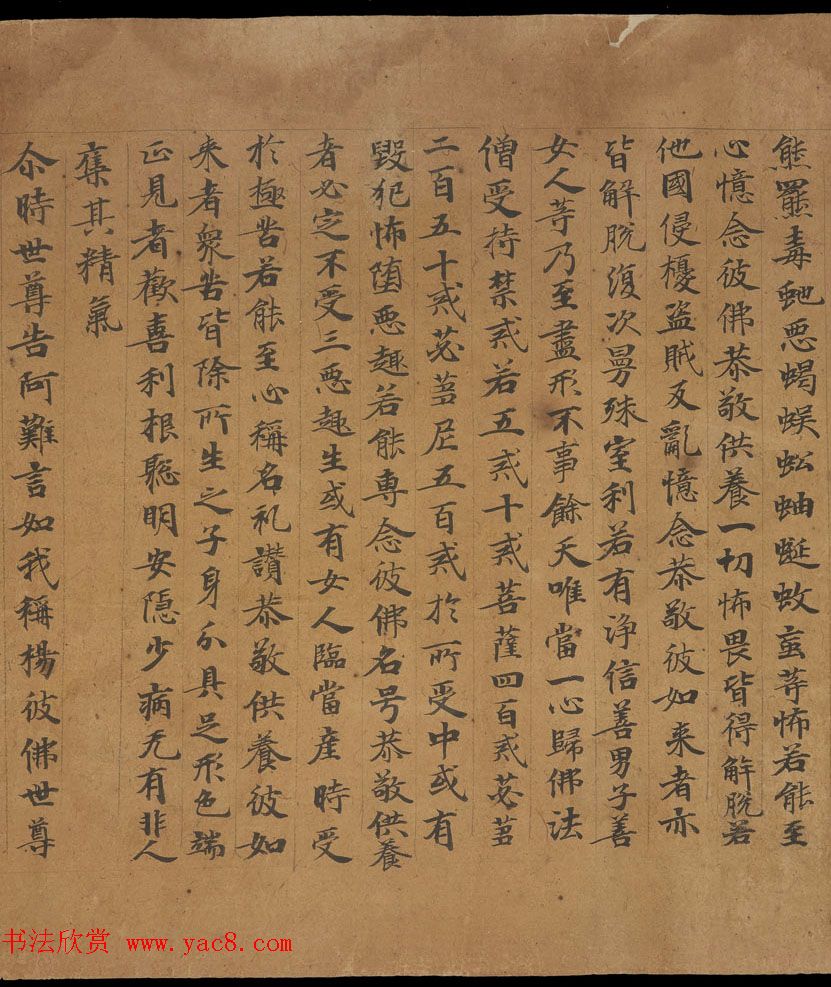 熊羆毒虵惡蝎蜈蚣蚰蜒蚊䖟等怖若能至
心憶念彼佛恭敬供養一切怖畏皆得解脫若
他國侵擾盜賊反亂憶念恭敬彼如来者亦
皆解脫復次曼殊室利若有淨信善男子善
女人等乃至盡形不事餘天唯當一心歸佛法
僧受持禁戒若五戒十戒菩薩四百戒苾蒭
二百五十戒苾蒭尼五百戒於所受中或有
毀犯怖堕惡趣若能專念彼佛名号恭敬供養
者必定不受三惡趣生或有女人臨當產時受
於極苦若能至心稱名礼讚恭敬供養彼如
来者衆苦皆除所生之子身分具足形色端
正見者歡喜利根聡明安隱少病无有非人
奪其精氣
尒時世尊告阿難言如我稱楊彼佛世尊
书法欣赏 www.yac8.com